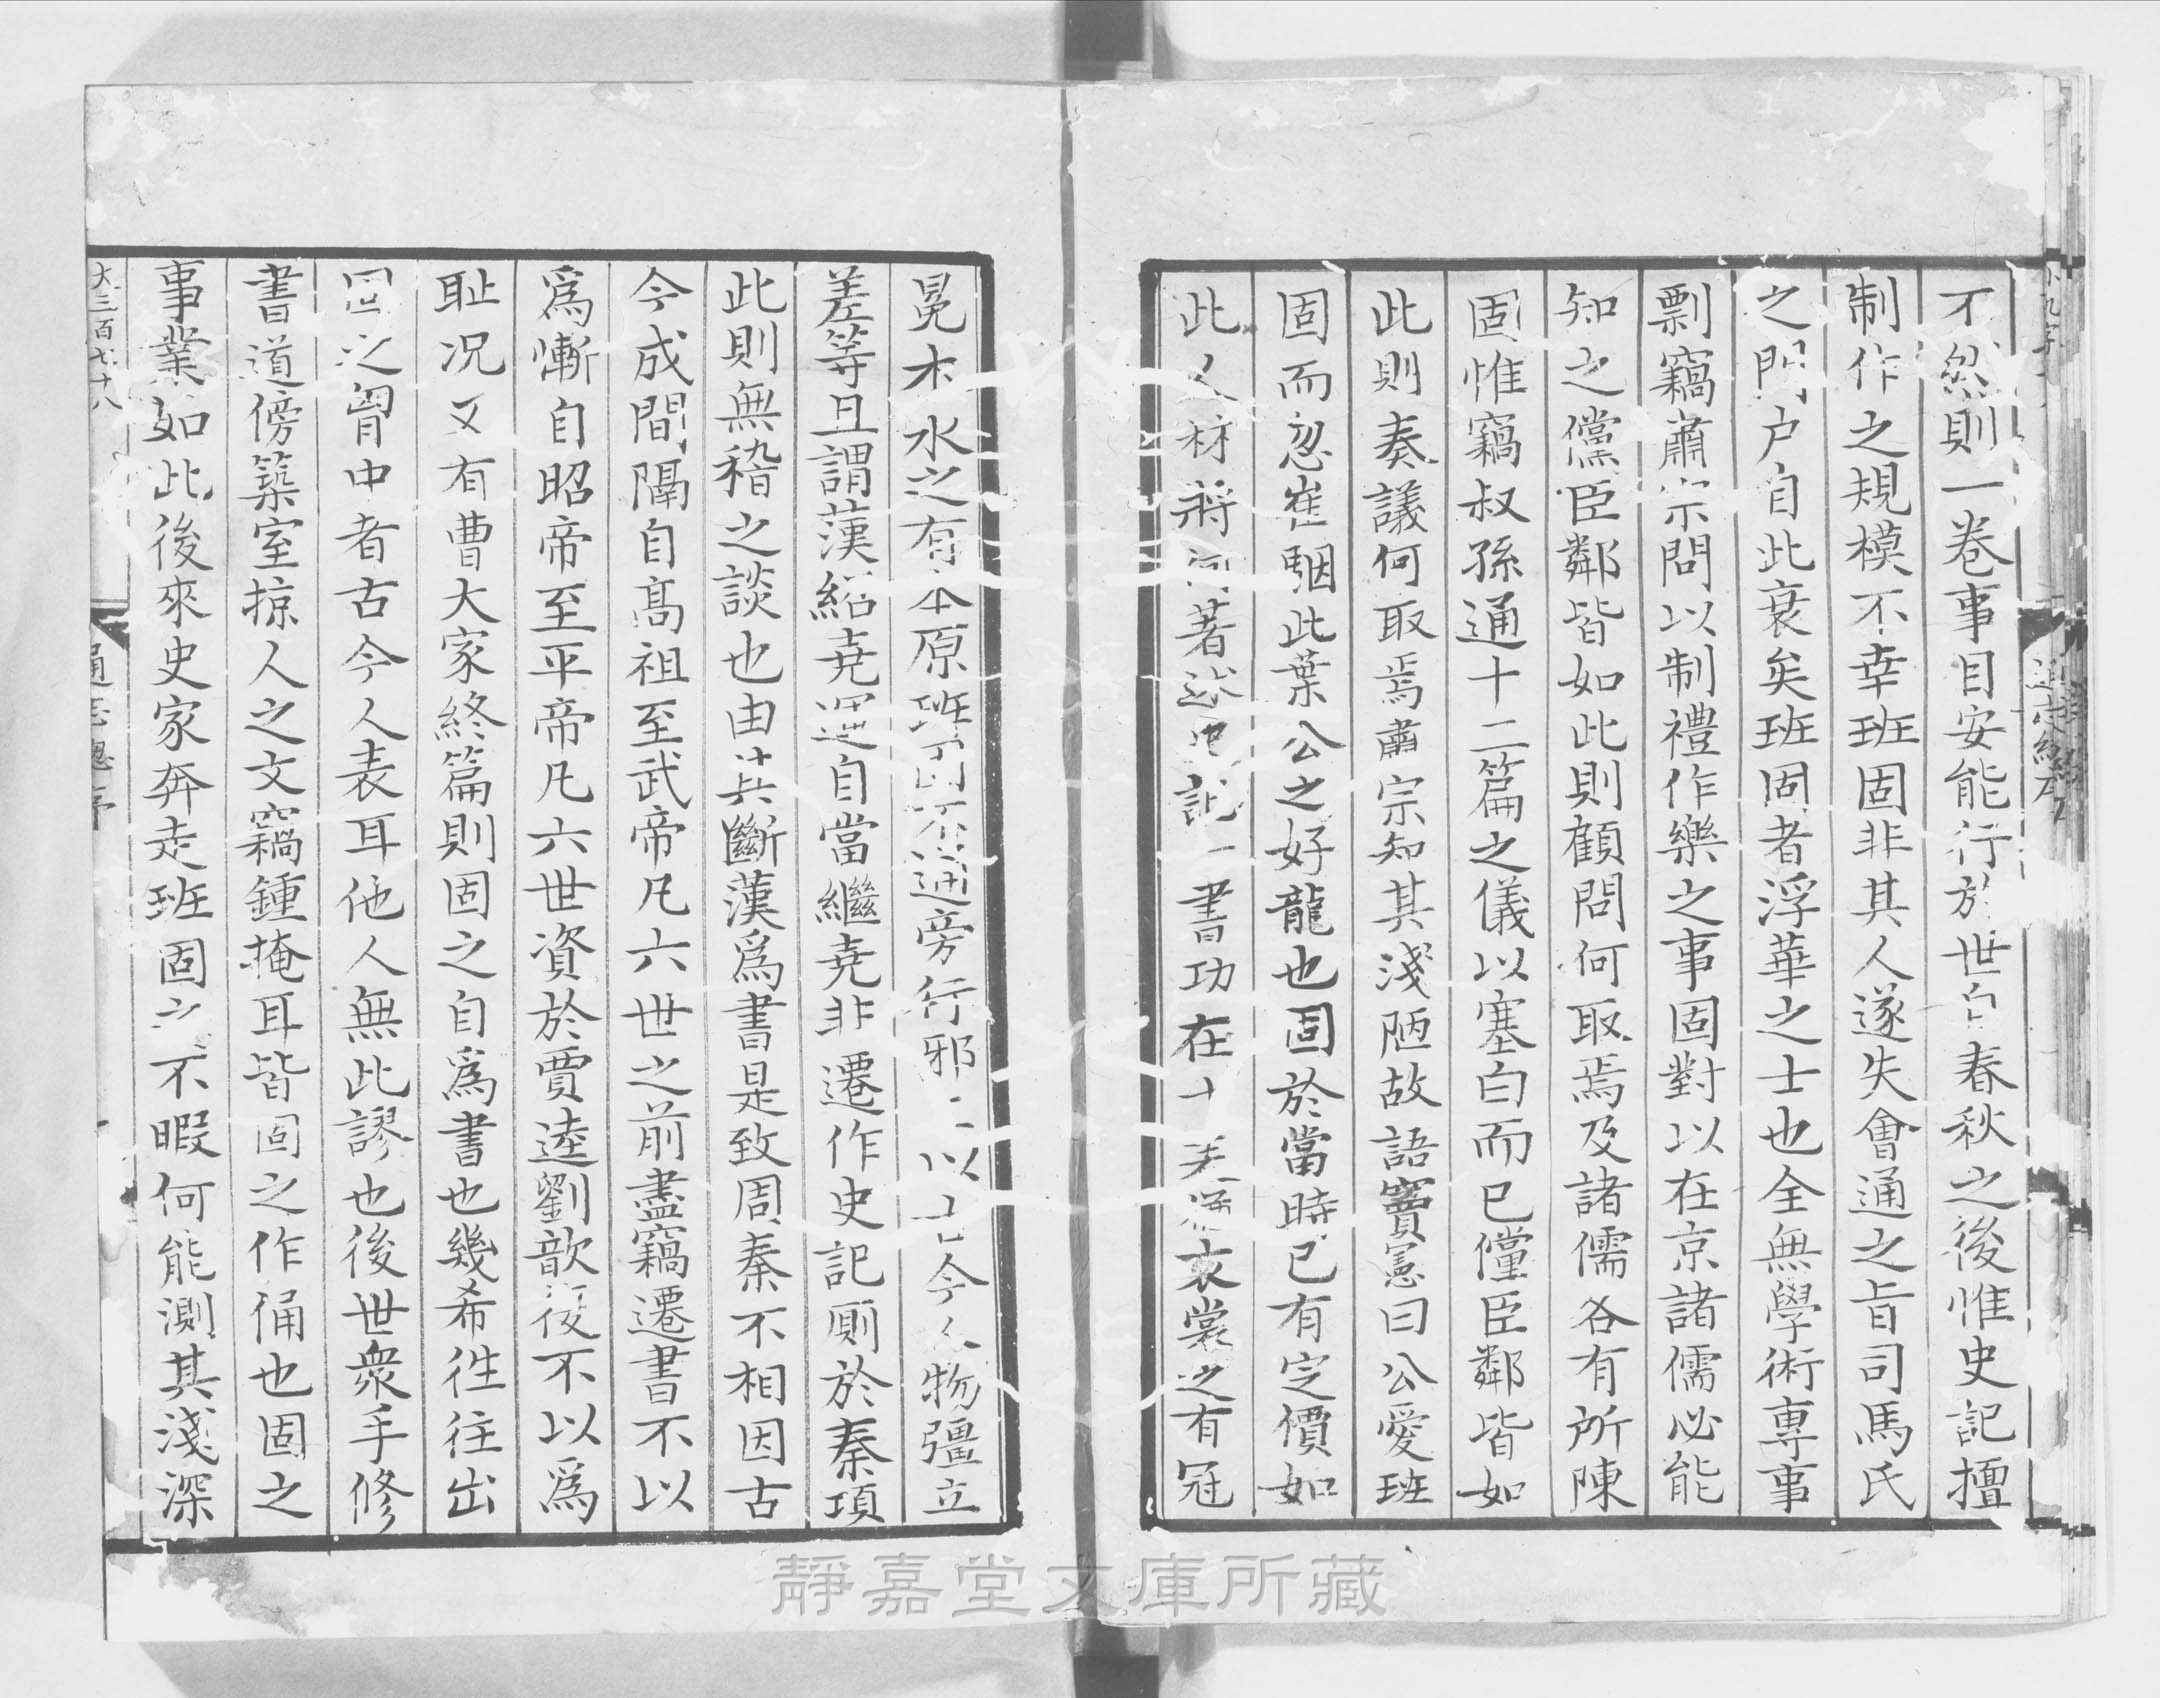 不然則一卷事目安能行於世自春秋之後惟史記擅
制作之規模不幸班固非其人遂失會通之旨司馬氏
之門户自此衰矣班固者浮華之士也全無學術專事
剽竊肅宗問以制禮作樂之事固對以在京諸儒必能
知之儻臣鄰皆如此則顧問何取焉及諸儒各有所陳
固惟竊叔孫通十二篇之儀以塞白而已儻臣鄰皆如
此則奏議何取焉肅宗知其淺陋故語竇憲曰公愛班
固而忽崔駰此葉公之好龍也固於當時已有定價如
此人材將何著述史記一書功在十表猶衣裳之有冠
冕木水之有本原班固不通旁行邪上以古今人物彊立
差等且謂漢紹堯運自當繼堯非遷作史記厠於秦項
此則無稽之談也由其斷漢爲書是致周秦不相因古
今成間隔自髙祖至武帝凡六世之前盡竊遷書不以
爲慙自昭帝至平帝凡六世資於賈逵劉歆復不以爲
耻况又有曹大家終篇則固之自爲書也幾希徃往出
固之胷中者古今人表耳他人無此謬也後世衆手修
書道傍築室掠人之文竊鍾掩耳皆固之作俑也固之
事業如此後來史家奔走班固之不暇何能測其淺深
大三百七十八
通志總序
靜嘉堂文庫所藏